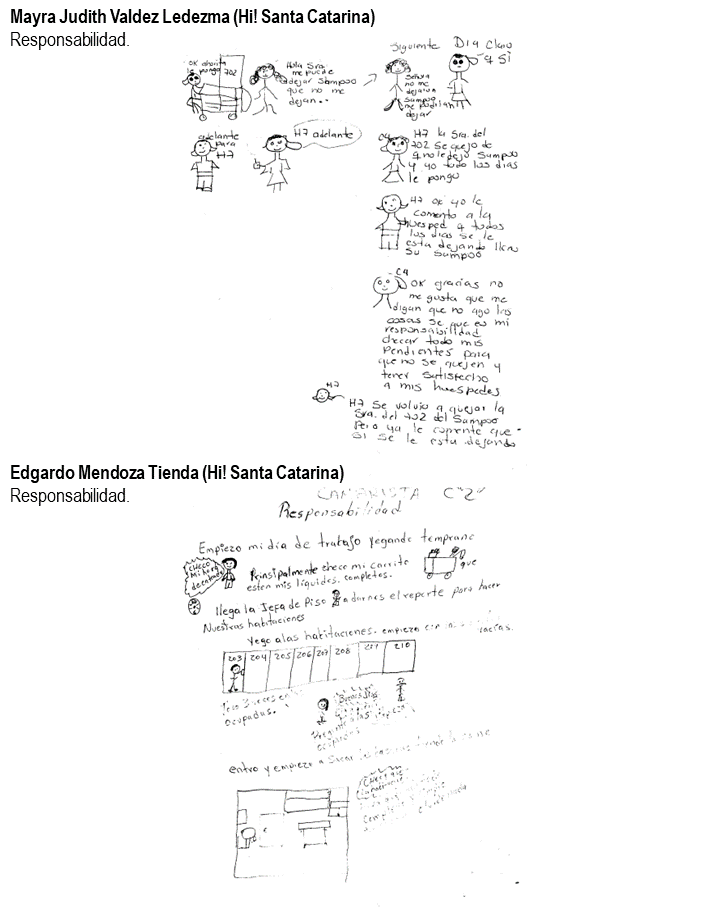 Mayra Judith Valdez Ledezma (Hi! Santa Catarina)
Responsabilidad.
OK ahorita
le pongo 702
Hola Sra.
me puede
dejar Sampoo
que no me
dejan..
Siguiente Dia
Señora
no me
dejaron
Sampoo
me podrian
dejar
Claro
q Si
adelante
para
H7
H7 adelante
C4
H7 la Sra. del
702 Se quejo de
q no le dejo Sumpoo
y yo todo los dias
le pongo
H7 OK yo le
comento a la
huesped q todos
los dias se le
esta dejando
Su Sampoo
C4
OK gracias no
me gusta que me
digan que no ago las
cosas Se que es mi
responsabilidad
checar todo mis
Pendientes para
que no se quejen y
tener Satisfecho
a mis huespedes
H7
H7 Se volvio a quejar la
Sra. del 702 del Sampoo
Pero ya le comente que
Si Se le esta dejando
Edgardo Mendoza Tienda (Hi! Santa Catarina)
Responsabilidad.
CAMARISTA C"2"
Responsabilidad
Empiezo mi dia de trabajo yegando temprano
CHECO
Mi hora
de entrada
Prinsipalmente chece mi carrito que
esten mis liquidos. completos.
llega la Jefa de Piso a darnos el reporte para hacer
Nuestras habitaciones
Yego a las habitaciones. empiezo con las vacias.
203 204 205 206 207 208 217 210
ocupadas.
Buenos Dias
ocupadas
entro y empiezo a Sacar